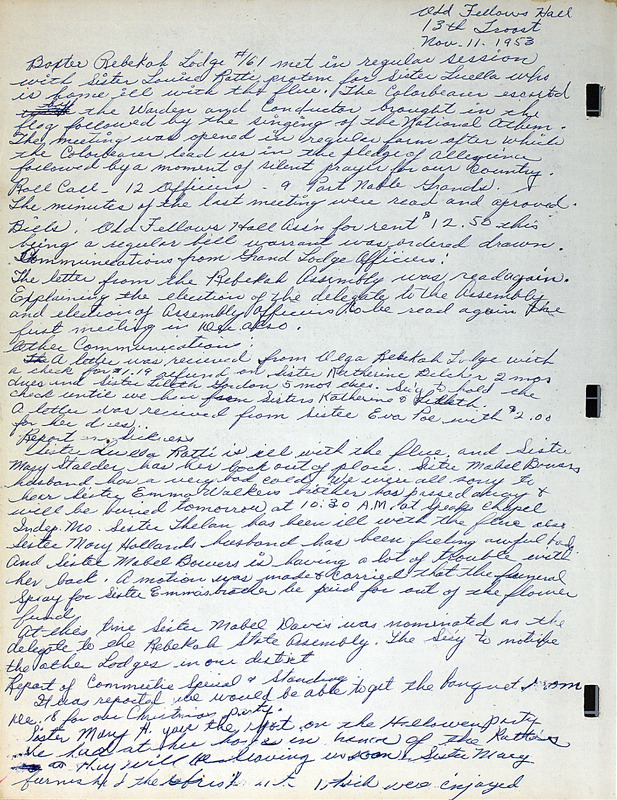 Odd Fellows Hall
13th Troost
Nov. 11. 1953
Baxter Rebekah Lodge #61 met in regular session
with Sister Louise Ratti, protem for Sister Luella who
is home ill with the flue. The Colorbearer escorted
the Warden and Conductor brought in the
flag followed by the singing of the National Athem.
The meeting was opened in regular form after which
the Colorbearer lead us in the pledge of allegience
followed by a moment of silent prayer for our Country.
Roll Call - 12 Officers - 9 Past Noble Grands.
The minutes of the last meeting were read and aproved.
Biells. Odd Fellows Hall Ass'n for rent $12.50 this
being a regular bill warrant was ordered drawn.
Communications from Grand Lodge Officers:
The letter from the Rebekah Assembly was read again.
Explaining the election of the delegate to the Assembly
and election of Assembly Officers to be read again the
first meeting in Dec. also.
Other Communication:
A letter was recieved from Olga Rebekah Lodge with
a check for $1.19 refund on Sister Katherine Belcher 2 mos
dues and Sister Lilleth Gordon 5 mos dues. Sec'y to hold the
check until we hear from Sisters Katherine & Lilleth
A letter was received from Sister Eva Poe with $2.00
for her dues.
Report on Sickness
Sister Luella Ratti is ill with the flue, and Sister
Mary Stalder has her back out of place. Sister Mabel Bowers
husband has a very bad cold. We were all sorry to
hear Sister Emma Walkers brother has passed away &
will be buried tomorrow at 10:30 A.M. at Speaks Chapel
Indep. Mo. Sister Thelan has been ill with the flue also
Sister Mary Hollands husband has been feeling awful bad,
And Sister Mabel Bowers is having a lot of trouble with
her back. A motion was made & carried that the funeral
spray for Sister Emmas brother be paid for out of the flower
fund.
At this time Sister Mabel Davis was nominated as the
delegate to the Rebekah State Assembly. The Sec'y to notifie
the other Lodges in our distict
Report of Committie Special & Standing
It was reported we would be able to get the Banquet Room
Dec. 18 for our Christmas party.
Sister Mary H. gave the report on the Halloween party
we had at her house in honor of the Rattis
They will be leaving us soon. Sister Mary
furnished the which were enjoyed